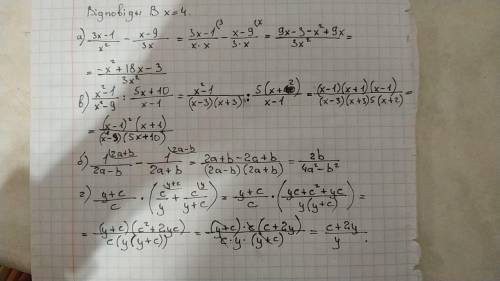 Відповідь В x=4.
а) (3x-1)/x² - (x-9)/3x = (3x-1^(3)/(x·x) - (x-9^(x)/(3·x) = (9x-3-x²+9x)/3x² =
= (-x²+18x-3)/3x²
в) (x²-1)/(x²-9) : (5x+10)/(x-1) = (x²-1)/((x-3)(x+3)) : 5(x+2)/(x-1) = (x-1)(x+1)(x-1)/((x-3)(x+3)5(x+2)) =
= (x-1)²(x+1)/((x-9)(5x+10))
б) 1^(2a+b)/(2a-b) - 1^(2a-b)/(2a+b) = (2a+b-2a+b)/((2a-b)(2a+b)) = 2b/(4a²-b²)
г) (y+c)/c · (c^(y+c)/y + c^(y)/(y+c)) = (y+c)/c · (yc+c²+yc)/(y(y+c)) =
= (y+c)(c²+2yc)/(c(y(y+c)) = (y+c)·c(c+2y)/(c·y·(y+c)) = (c+2y)/y.